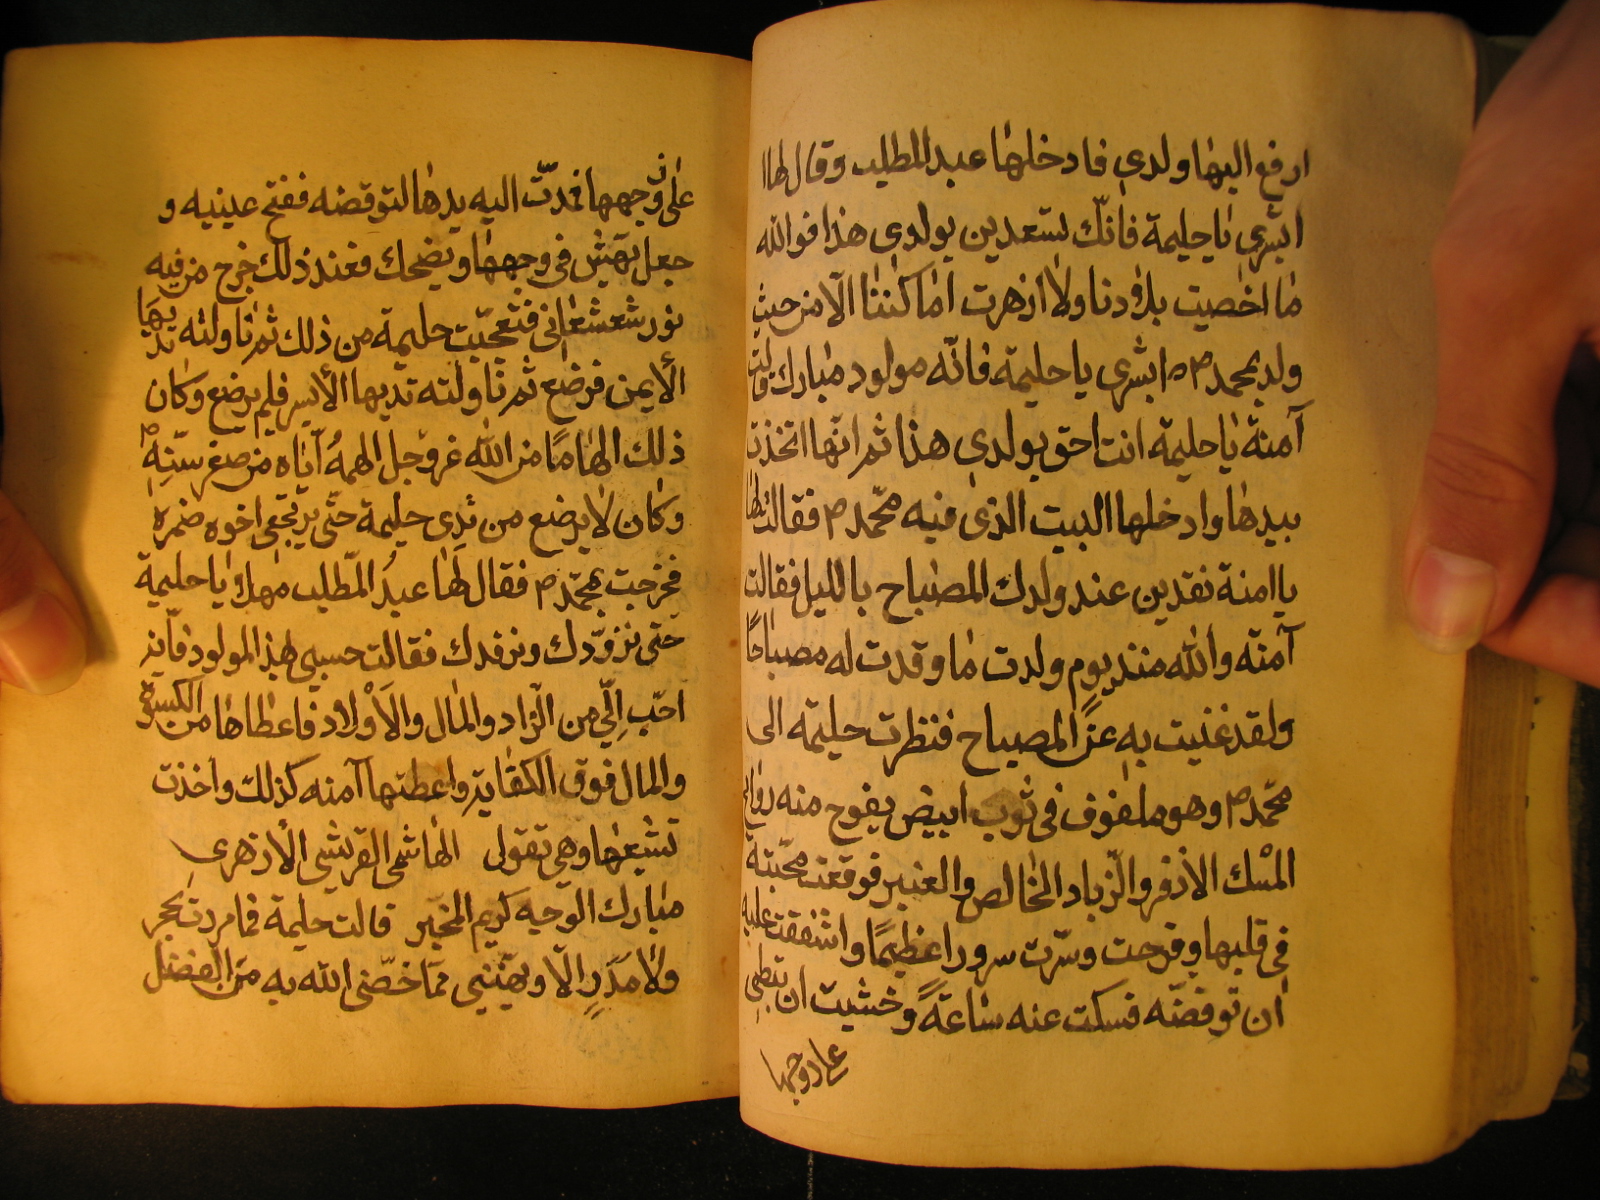 ارفع اليها ولدي فادخلها عبد المطلب وقال لها
ابشري يا حليمة فانّك تسعدين بولدي هذا فوالله
ما اخصيت بلادنا ولا ازهرت اماكننا الّا من حيث
ولد بمحمد م ه ابشري يا حليمة فانّه مولود مبارك قالت
آمنة يا حليمة انت احق بولدي هذا ثم انها اتخذت
بيدها وادخلها البيت الذي فيه محمّد م فقالت لها
يا امنة نقدين عند ولدك المصباح بالليل فقالت
آمنه والله منذ يوم ولدت ما وقدت له مصباحًا
ولقد غنيت به عن المصباح فنظرت حليمة الى
محمّد م وهو ملفوف في ثوب ابيض يفوح منه روائح
المسْك الاذفر والزّباد الخالص والعنبر فوقعت محبّته
في قلبها وفرحت وسرّت سرورا عظيمًا واشفقت عليه
ان توقضه فسكت عنه ساعةً وخشيت ان تبطي
على زوجها
على زوجهها فمدّت اليه يدها لتوقضه ففتح عينيه و
جعل يهش في وجهها ويضحك فعند ذلك خرج من فيه
نور شعشعاني فتعجّبت حليمة من ذلك ثم ناولته ثديها
الأيمن فرضع ثم ناولته ثديها الأيسر فلم يرضع وكان
ذلك الهامًا من الله عز وجل الهمهُ ايّاه من صغر سنّه م
وكان لا يرضع من ثدي حليمة حتّى يرتجعي اخوه ضمره
فخرجت بمحمّد م فقال لها عبدُ المطّلب مهلا يا حليمة
حتى نزوّدك ونرفدك فقالت حسبي هذا المولود فانّه
احبّ اِلّي من الزّاد والمال والاَوْلاد فاعطاها من الكسوة
والمال فوق الكفاية واعطتها آمنه كذلك واخذت
تشيعها وهي تقول الهاشمي القرشي الأزهري
مبارك الوجيه كريم المخبر قالت حليمة فما مررت بحجر
ولا مدَرٍ الّا ويهنّني ممّا خصّني الله به من الفضل